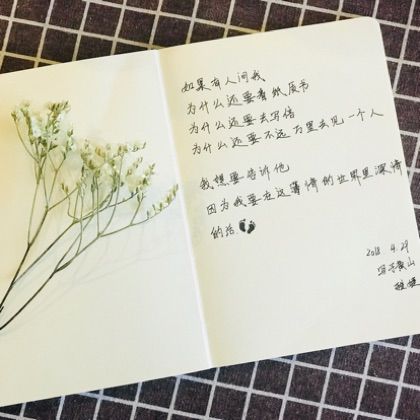 如果有人问我
为什么还要看纸质书
为什么还要去写信
为什么还要不远万里去见一个人
我想要告诉他
因为我要在这薄情的世界里深情
的活
2018.4.29
写于黄山